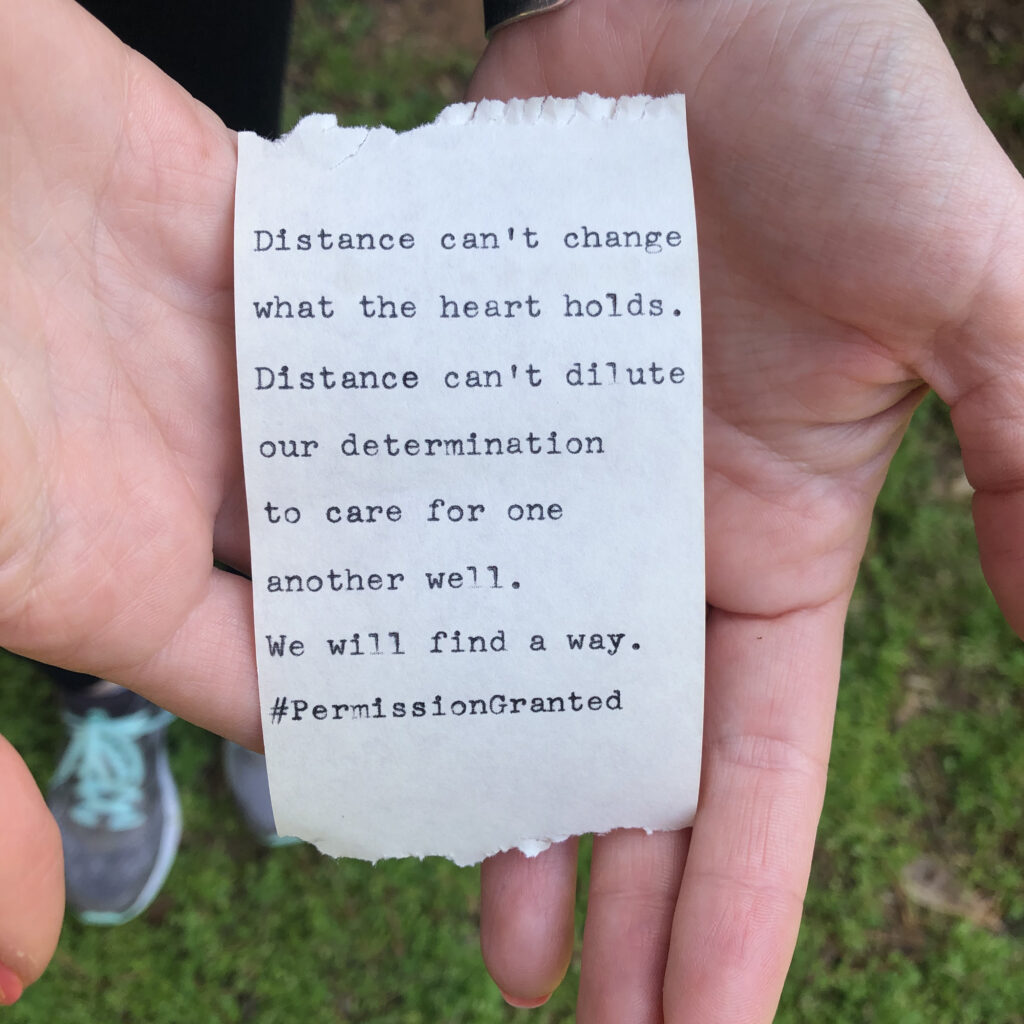 Distance can't change
what the heart holds.
Distance can't dilute
our determination
to care for one
another well.
We will find a way.
#PermissionGranted